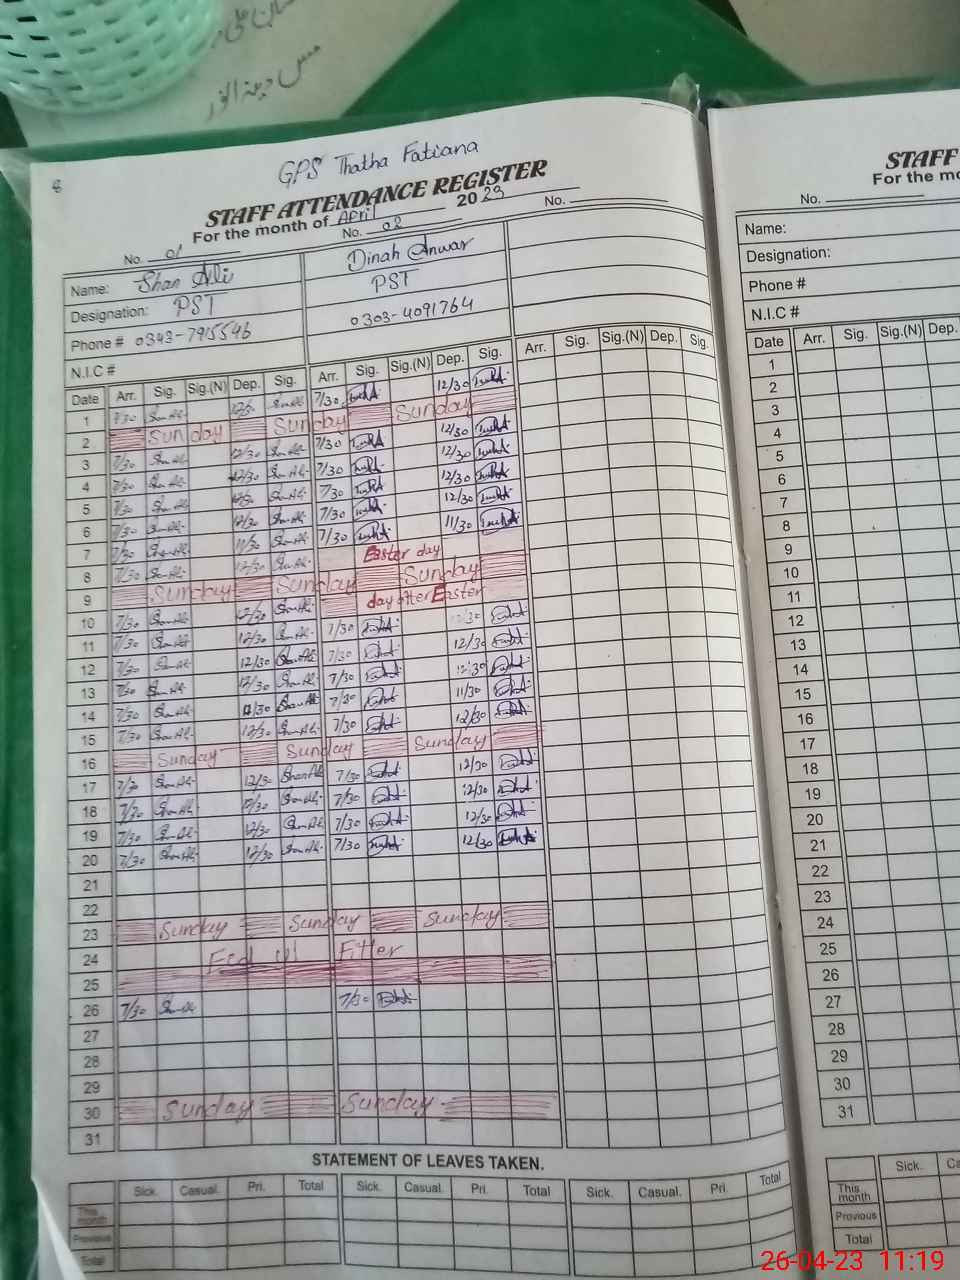 مس دینہ انور
8
GPS Thatha Fatiana
STAFF ATTENDANCE REGISTER
For the month of April 2023
No. 01 No. 02 No.
Name: Shan Ali Dinah Anwar
Designation: PST PST
Phone # 0343-7915546 0303-4091764
N.I.C #
Date Arr. Sig. Sig.(N) Dep. Sig. Arr. Sig. Sig.(N) Dep. Sig. Arr. Sig. Sig.(N) Dep. Sig.
1 7/30 Shan Ali 12/30 Shan Ali 7/30 12/30
2 Sunday Sunday Sunday
3 7/30 Shan Ali 12/30 Shan Ali 7/30 12/30
4 7/30 Shan Ali 12/30 Shan Ali 7/30 12/30
5 7/30 Shan Ali 12/30 Shan Ali 7/30 12/30
6 7/30 Shan Ali 12/30 Shan Ali 7/30 12/30
7 7/30 Shan Ali 11/30 Shan Ali 7/30 11/30
8 7/30 Shan Ali 12/30 Shan Ali Easter day
9 Sunday Sunday Sunday
10 7/30 Shan Ali 12/30 Shan Ali day after Easter
11 7/30 Shan Ali 12/30 Shan Ali 7/30 12/30
12 7/30 Shan Ali 12/30 Shan Ali 7/30 12/30
13 7/30 Shan Ali 12/30 Shan Ali 7/30 12/30
14 7/30 Shan Ali 11/30 Shan Ali 7/30 11/30
15 7/30 Shan Ali 12/30 Shan Ali 7/30 12/30
16 Sunday Sunday Sunday
17 7/30 Shan Ali 12/30 Shan Ali 7/30 12/30
18 7/30 Shan Ali 12/30 Shan Ali 7/30 12/30
19 7/30 Shan Ali 12/30 Shan Ali 7/30 12/30
20 7/30 Shan Ali 12/30 Shan Ali 7/30 12/30
21
22
23 Sunday Sunday Sunday
24 Eid ul Fitter
25
26 7/30 Shan Ali 7/30
27
28
29
30 Sunday Sunday
31
STATEMENT OF LEAVES TAKEN.
Sick. Casual. Pri. Total Sick. Casual. Pri. Total Sick. Casual. Pri. Total
This month
Previous
Total
STAFF
For the mo
No.
Name:
Designation:
Phone #
N.I.C #
Date Arr. Sig. Sig.(N) Dep.
1
2
3
4
5
6
7
8
9
10
11
12
13
14
15
16
17
18
19
20
21
22
23
24
25
26
27
28
29
30
31
Sick. Ca
This month
Previous
Total
26-04-23 11:19